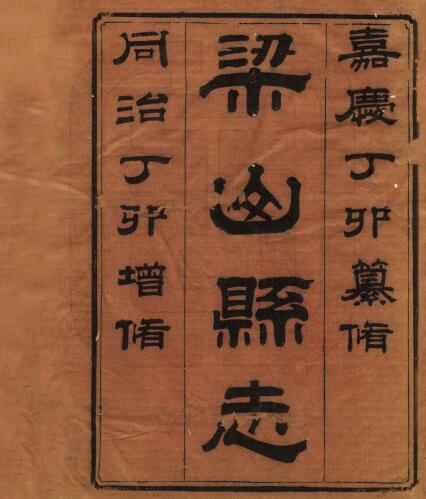 嘉慶丁卯纂脩
梁山縣志
同治丁卯增脩